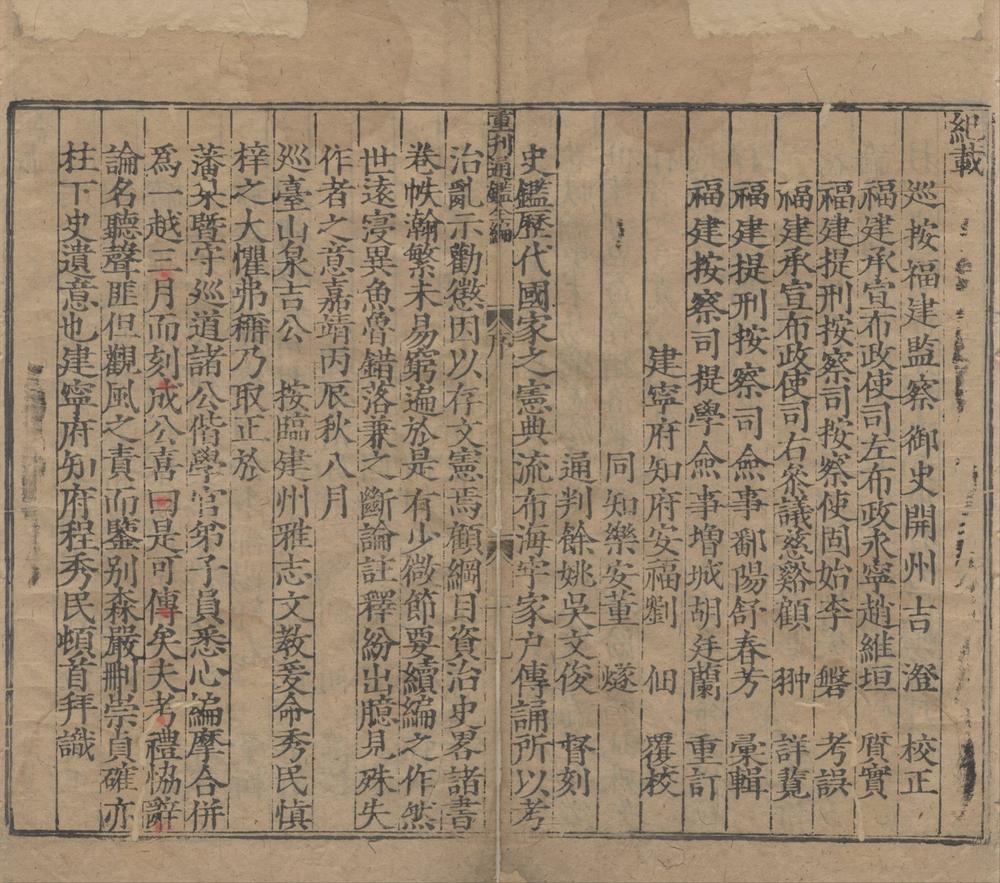 紀載
巡按福建監察御史開州吉　澄　校正
福建承宣布政使司左布政永寧趙維垣　質實
福建提刑按察司按察使固始李　磐　考誤
福建承宣布政使司右叅議慈谿顧　翀　詳覽
福建提刑按察司僉事鄱陽舒春芳　彙輯
福建按察司提學僉事增城胡廷蘭　重訂
建寧府知府安福劉　佃　覆校
同知樂安董　燧
通判餘姚吳文俊　督刻
史鑑歷代國家之憲典流布海宇家户傳誦所以考
重刊通鑑全編　序
治亂示勸懲因以存文憲焉顧綱目資治史畧諸書
卷帙瀚繁未易窮遍於是有少微節要續編之作然
世遠寖異魚魯錯落兼之斷論註釋紛出臆見殊失
作者之意嘉靖丙辰秋八月
巡臺山泉吉公　按臨建州雅志文教爰命秀民慎
梓之大懼弗稱乃取正於
藩臬暨守廵道諸公偕學官弟子員悉心編摩合併
爲一越三月而刻成公喜曰是可傳矣夫考禮恊辭
論名聽聲匪但觀風之責而鑒别森嚴刪崇貞確亦
柱下史遺意也建寧府知府程秀民頓首拜識